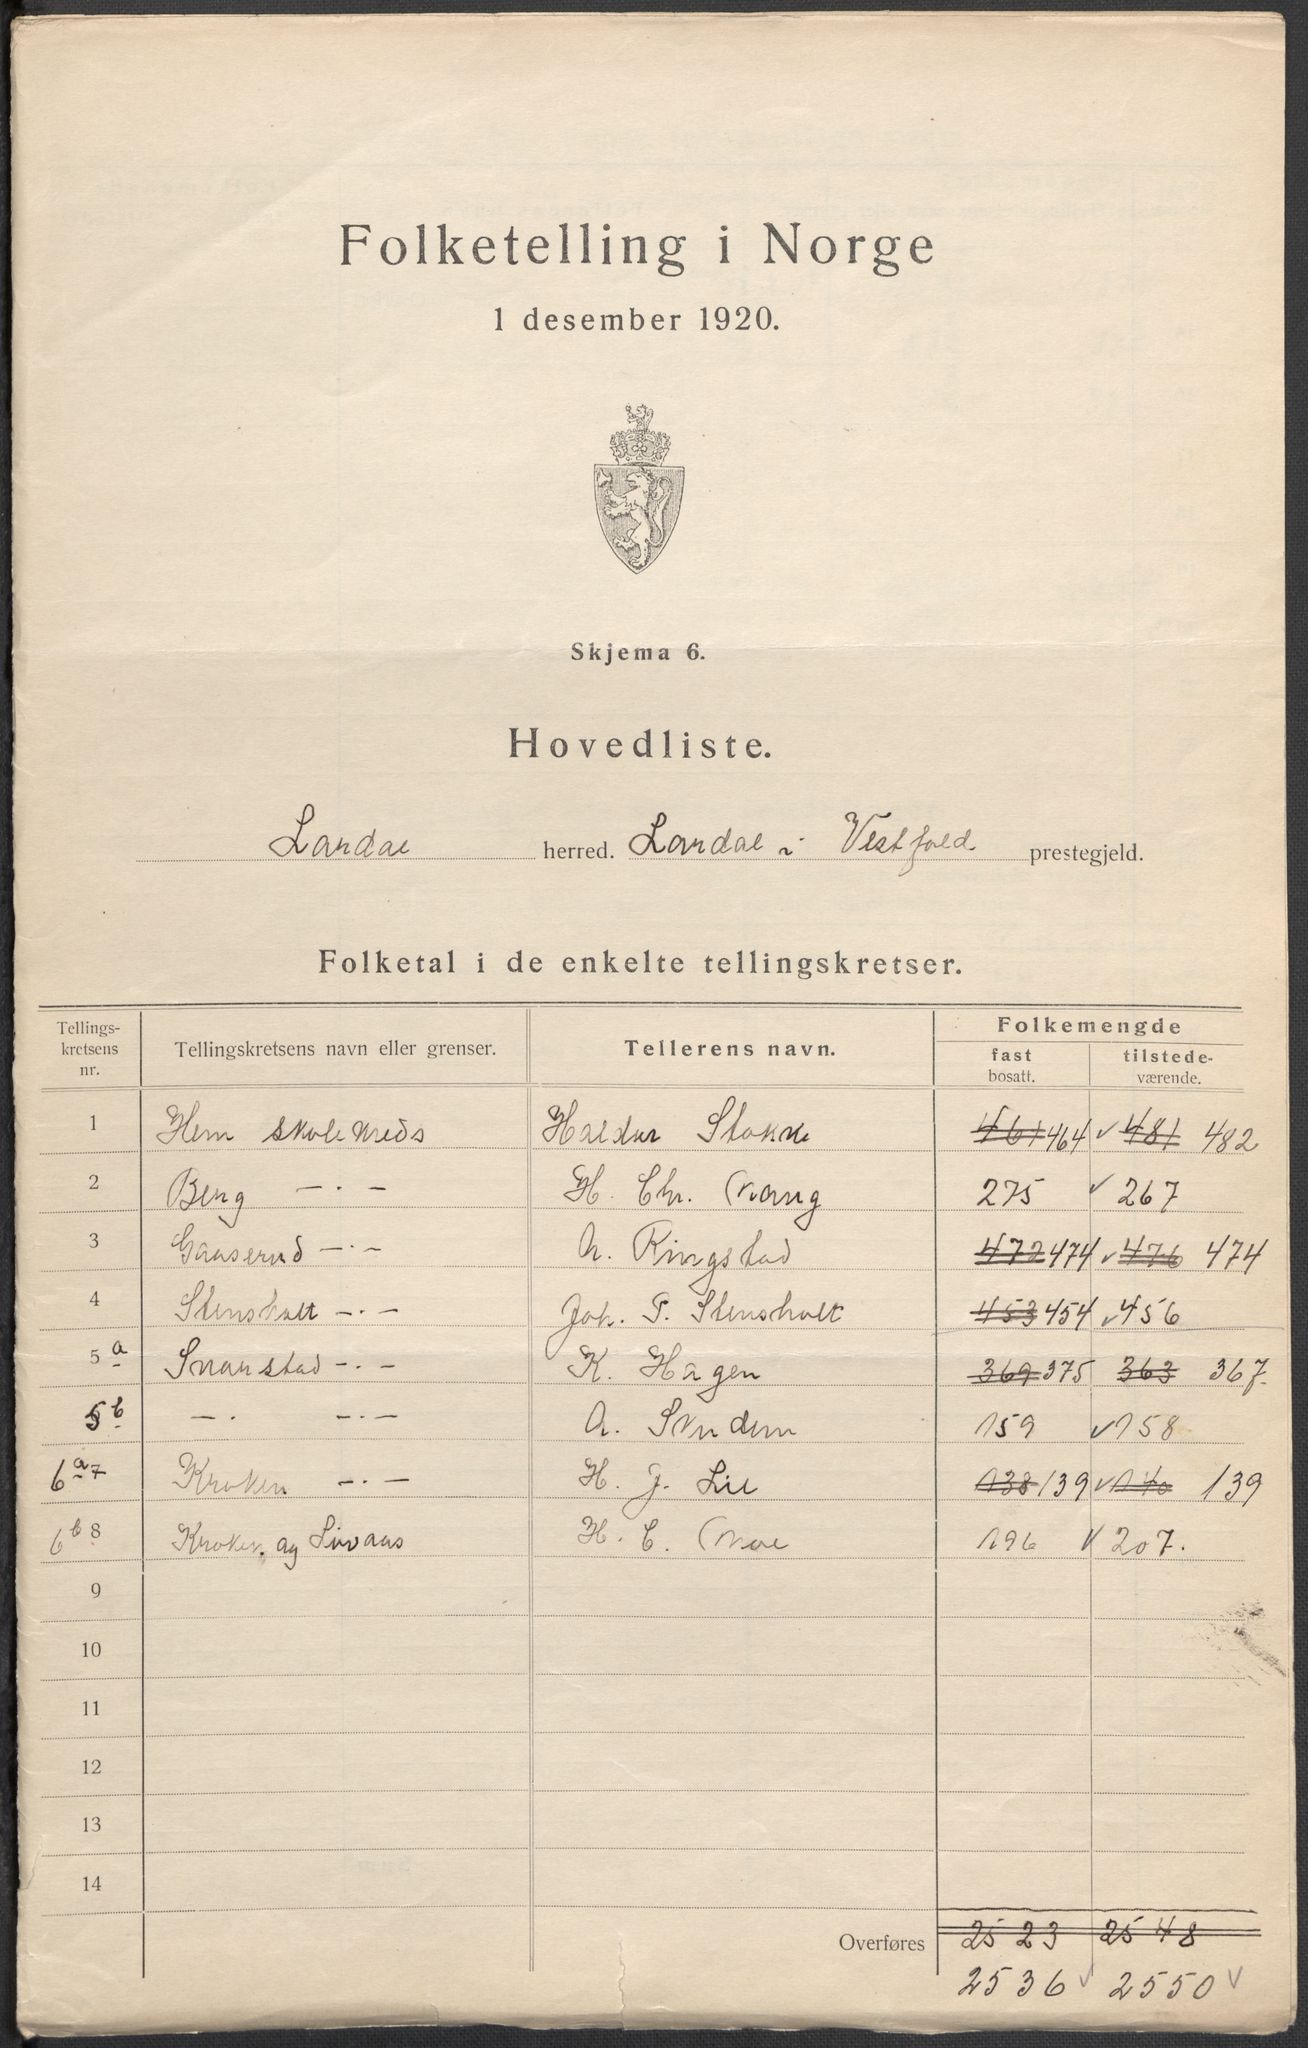 Folketelling i Norge
1 desember 1920.
Skjema 6.
Hovedliste.
Lardal herred. Lardal i Vestfold prestegjeld.
Folketal i de enkelte tellingskretser.
Tellings-
kretsens
nr.
Tellingskretsens navn eller grenser.
Tellerens navn.
Folkemengde
fast
bosatt.
tilstede-
værende.
1 Hem skolekreds Haldur Stokke 461 464 ✓ 481 482
2 Berg — · — H. Chr. 275 ✓ 267
3 Gaaserud — · — A. Ringstad 472 474 ✓ 476 474
4 Stensholt — · — Joh. P. Stensholt 453 454 ✓ 456
5 a Svarstad — · — K. Hagen 369 375 363 367.
5 b — · — · — A. 159 ✓ 158
6 a 7 Kroken — · — H. J. Lie 138 139 ✓ 140 139
6 b 8 Kroken og Livaas H. C. Moe 196 ✓ 207.
9
10
11
12
13
14
Overføres 2523 2548
2536 ✓ 2550 ✓